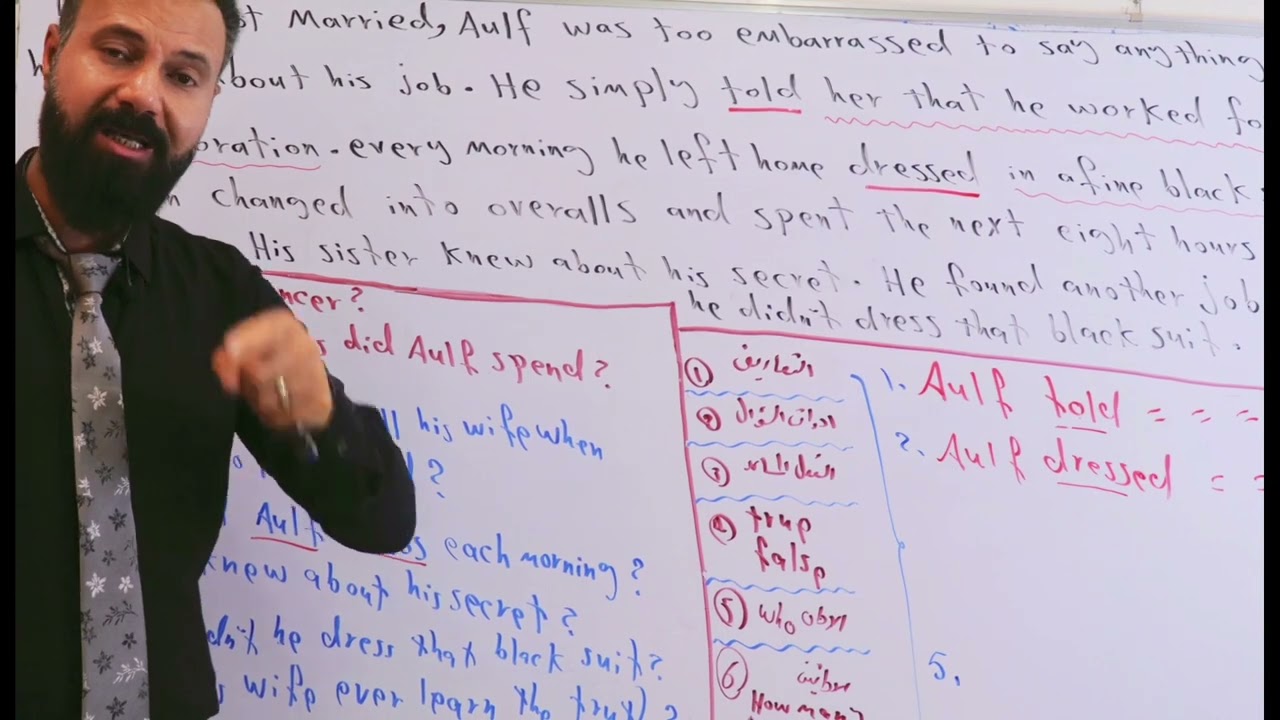 t Married, Aulf was too embarrassed to say anything
bout his job. He simply told her that he worked fo
oration. every morning he left home dressed in a fine black
n changed into overalls and spent the next eight hours
His sister knew about his secret. He found another job
he didn't dress that black suit.
ncer?
s did Aulf spend?
ll his wife when
?
Aulf each morning?
knew about his secret?
dn't he dress that black suit?
s wife ever learn the trut) ?
① التعاريف
② ادوات السؤال
③ الفعل المساعد
④ true
false
⑤ who
⑥
How many
1. Aulf told = = =
2. Aulf dressed = =
5.